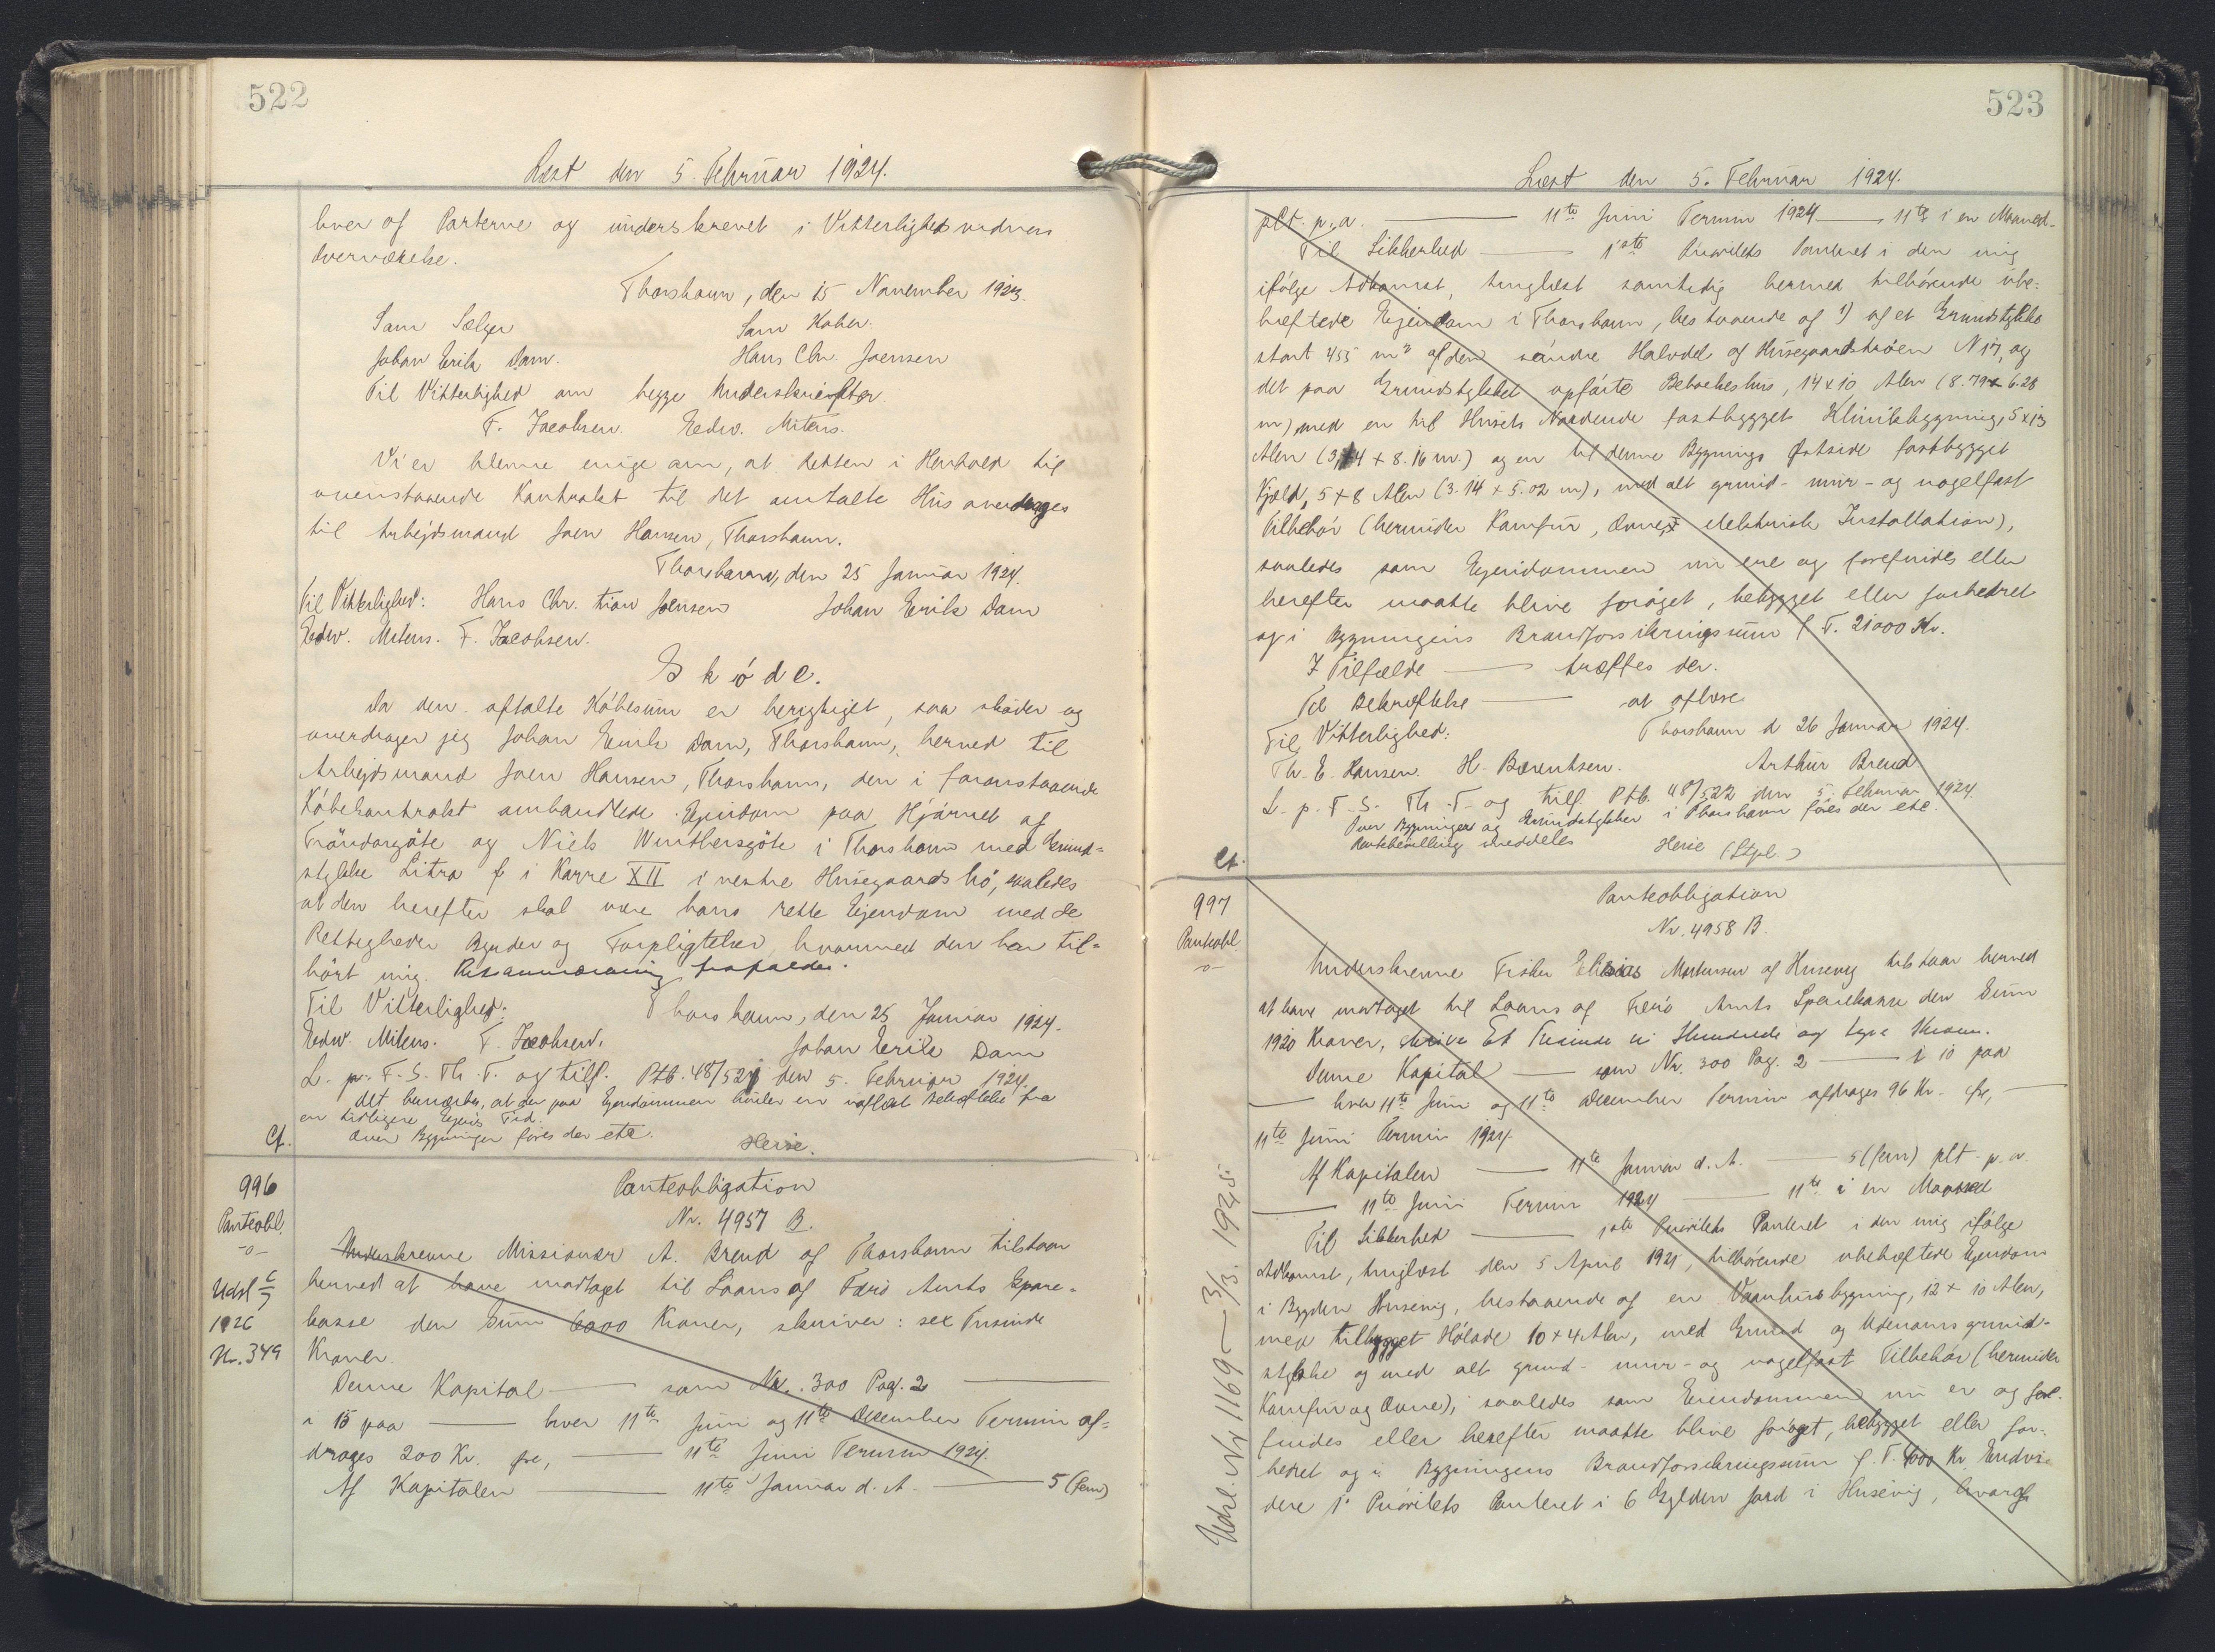 522
Læst den 5. Februar 1924.
hver af Parterne og underskrevet i Vitterlighedsvidners
Overværelse.
Thorshavn, den 15 November 1923.
Som Sælger
Som Køber.
Johan Erik Dam.
Hans Chr. Joensen
Til Vitterlighed om begge Underskrifter.
F. Jacobsen. Edw. Mitens.
Vi er blevne enige om, at Retten i Henhold til
ovenstaaende Kontrakt til det omtalte Hus overdrages
til Arbejdsmand Joen Hansen, Thorshavn.
Thorshavn, den 25 Januar 1924.
Til Vitterlighed: Hans Chr. Joensen Johan Erik Dam
Edw. Mitens. F. Jacobsen.
Skøde.
Da den aftalte Købesum er berigtiget, saa skøder og
overdrager jeg Johan Erik Dam, Thorshavn, herved til
Arbejdsmand Joen Hansen, Thorshavn, den i foranstaaende
Købekontrakt omhandlede Ejendom paa Hjørnet af
Trøndargøte og Niels Winthersgøte i Thorshavn med Grund-
stykke Litra f i Karre XII i vestre Husegaards hø, saaledes
at den herefter skal være hans rette Ejendom med de
Rettigheder Byrder og Forpligtelser, hvormed den har til-
hørt mig. Retsanmærkning frafaldes.
Til Vitterlighed: Thorshavn, den 25 Januar 1924.
Edw. Mitens. F. Jacobsen. Johan Erik Dam
L. p. F. S. Th. T. og tilf. Ptb. 48/521 den 5. Februar 1924.
det bemærkes, at der paa Ejendommen hviler en uaflæst Behæftelse fra
en tidligere Ejers Tid.
Over Bygninger føres der etc. Heise.
Cf.
996
Panteobl.
-o-
Udsl 6/7
1926
Nr. 349
Panteobligation
Nr. 4957 B.
Underskrevne Missionær A. Brend af Thorshavn tilstaar
herved at have modtaget til Laans af Færø Amts Spare-
kasse den Sum 6000 Kroner, skriver: sex Tusinde
Kroner.
Denne Kapital — som Nr. 300 Pag. 2 —
i 15 paa — hver 11te Juni og 11te December Termin af-
drages 200 Kr. fre, — 11te Juni Termin 1924.
Af Kapitalen — 11te Januar d. A. — 5 (fem)
523
Læst den 5. Februar 1924.
plt. p. a. — 11te Juni Termin 1924 — 11te i en Maaned.
Til Sikkerhed — 1ste Prioritets Panteret i den mig
ifølge Adkomst, tinglæst samtidig hermed tilhørende ube-
hæftede Ejendom i Thorshavn, bestaaende af 1) af et Grundstykke
stort 455 m² af den søndre Halvdel af Husegaardstrøen N 17, og
det paa Grundstykket opførte Beboelseshus, 14 x 10 Alen (8.79 x 6.28
m), med en til Husets Nordende fastbygget Klinikbygning, 5 x 13
Alen (3,14 x 8.16 m.) og en til denne Bygnings Østside fastbygget
Kjæld, 5 x 8 Alen (3.14 x 5.02 m), med alt grund- mur- og nagelfast
Tilbehør (herunder Komfur, Ovne, elektrisk Installation),
saaledes som Ejendommen nu ere og forefindes eller
herefter maatte blive forøget, bebygget eller forbedret
og i Bygningens Brandforsikringssum f. T. 21000 Kr.
I Tilfælde — træffes der.
Til Bekræftelse — at aflæse
Til Vitterlighed: Thorshavn d 26 Januar 1924.
Th. E. Hansen. H. Bærentsen. Arthur Brend
L. p. F. S. Th. T. og tilf. Ptb. 48/522 den 5. Februar 1924.
Over Bygninger og Grundstykker i Thorshavn føres der etc.
Rentebevilling meddeles Heise (Stpl.)
Cf.
997
Panteobl.
-o-
Udsl. Nr 1169 — 3/3. 1925.
Panteobligation
Nr. 4958 B.
Underskrevne Fisker Elisias Mortensen af Husevig tilstaar herved
at have modtaget til Laans af Færø Amts Sparekasse den Sum
1920 Kroner, skriver Et Tusinde ni Hundrede og tyve Kroner.
Denne Kapital — som Nr. 300 Pag. 2 — i 10 paa
— hver 11te Juni og 11te December Termin afdrages 96 Kr. fre, —
11te Juni Termin 1924.
Af Kapitalen — 11te Januar d. A. — 5 (fem) plt. p. a.
— 11te Juni Termin 1924 — 11te i en Maaned
Til Sikkerhed — 1ste Prioritets Panteret i den mig ifølge
Adkomst, tinglæst den 5 April 1921, tilhørende ubehæftede Ejendom
i Bygden Husevig, bestaaende af en Vaanhusbygning, 12 x 10 Alen,
med tilbygget Hølade 10 x 4 Alen, med Grund og Udenoms grund-
stykke og med alt grund- mur- og nagelfast Tilbehør (herunder
Komfur og Ovne), saaledes som Ejendommen nu er og fore-
findes eller herefter maatte blive forøget, bebygget eller for-
bedret og i Bygningens Brandforsikringssum f. T. 4000 Kr. Endvi-
dere 1' Prioritets Panteret i 6 Gylden Jord i Husevig, hvoraf